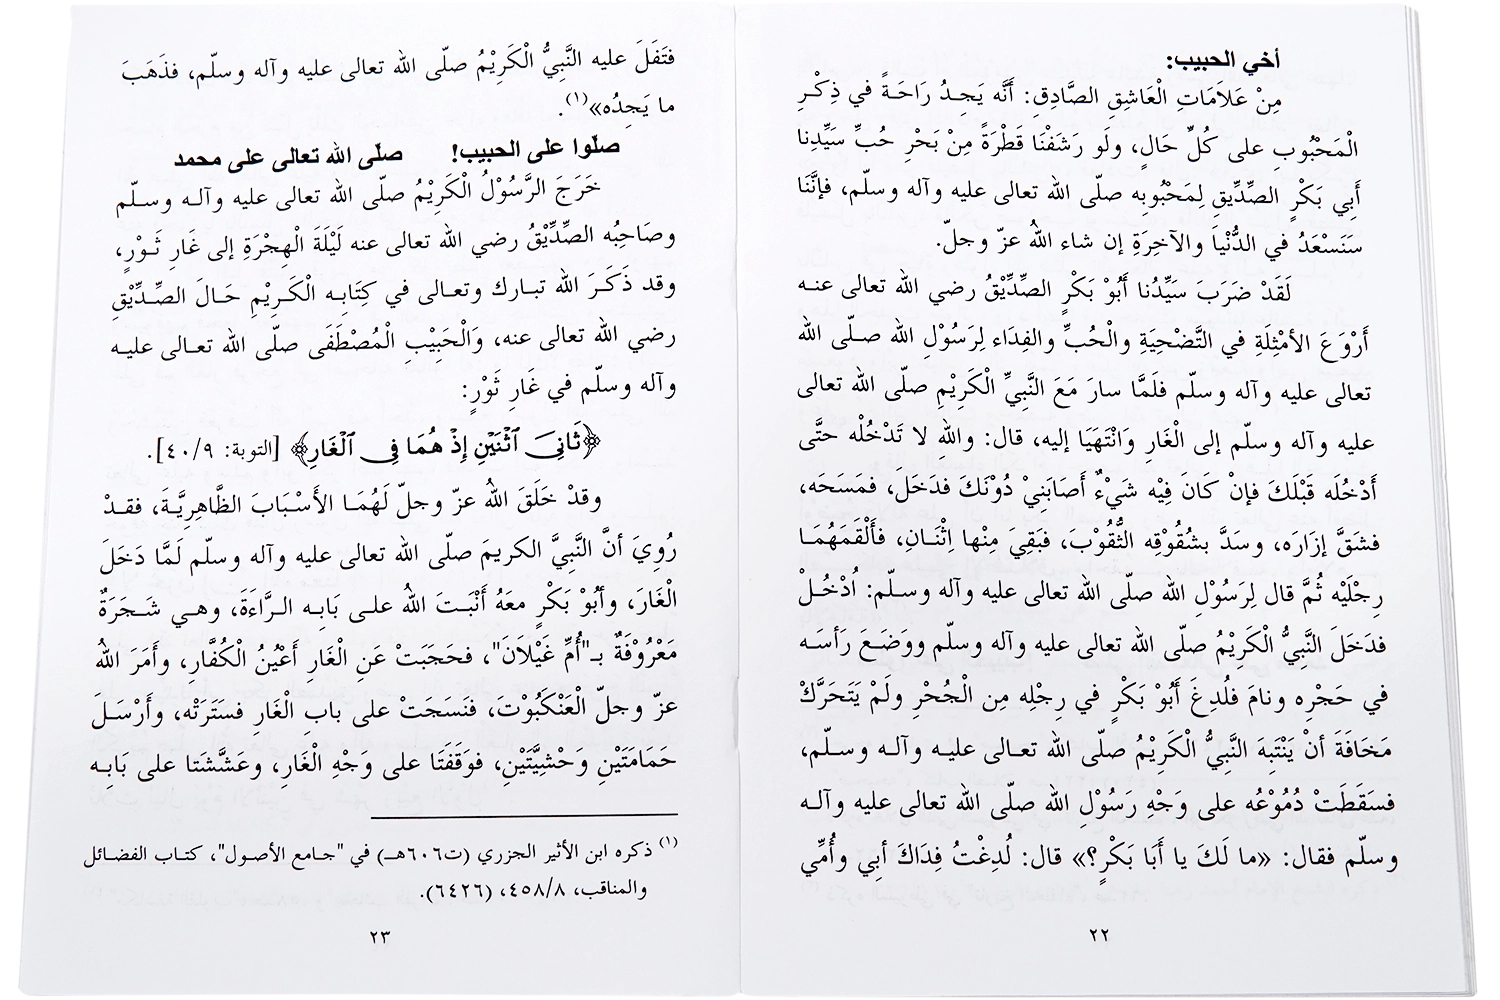 أخي الحبيب:
مِنْ عَلاَمَاتِ الْعَاشِقِ الصَّادِقِ: أَنَّه يَجِدُ رَاحَةً في ذِكْرِ
الْمَحْبُوبِ على كُلِّ حَالٍ، ولَو رَشَفْنَا قَطْرَةً مِنْ بَحْرِ حُبِّ سَيِّدِنا
أَبِي بَكْرٍ الصِّدِّيقِ لِمَحْبُوبِه صلّى الله تعالى عليه وآله وسلّم، فإنَّنَا
سَنَسْعَدُ في الدُّنْيَا والآخِرَةِ إن شاء اللهُ عزّ وجلّ.
لَقَدْ ضَرَبَ سَيِّدُنا أَبُوْ بَكْرٍ الصِّدِّيْقُ رضي الله تعالى عنه
أَرْوَعَ الأمْثِلَةِ في التَّضْحِيَةِ والْحُبِّ والفِدَاء لِرَسُوْلِ الله صلّى الله
تعالى عليه وآله وسلّم فلَمَّا سارَ مَعَ النَّبِيِّ الْكَرِيْمِ صلّى الله تعالى
عليه وآله وسلّم إلى الْغَارِ وَانْتَهَيَا إليه، قال: واللهِ لا تَدْخُلُه حتَّى
أَدْخُلَه قَبْلَكَ فإنْ كَانَ فِيْه شَيْءٌ أَصَابَنِيْ دُوْنَكَ فدَخَلَ، فمَسَحَه،
فشَقَّ إزَارَه، وسَدَّ بشُقُوْقِه الثُّقُوْبَ، فبَقِيَ مِنْها اِثْنَانِ، فأَلْقَمَهُمَا
رِجْلَيْه ثُمَّ قال لِرَسُوْلِ الله صلّى الله تعالى عليه وآله وسلّم: اُدْخُلْ
فدَخَلَ النَّبِيُّ الْكَرِيْمُ صلّى الله تعالى عليه وآله وسلّم ووَضَعَ رَأسَه
في حَجْرِه ونامَ فلُدِغَ أَبُوْ بَكْرٍ في رِجْلِه مِن الْجُحْرِ ولَمْ يَتَحَرَّكْ
مَخَافَةَ أنْ يَنْتَبِهَ النَّبِيُّ الْكَرِيْمُ صلّى الله تعالى عليه وآله وسلّم،
فسَقَطَتْ دُمُوْعُه على وَجْهِ رَسُوْلِ الله صلّى الله تعالى عليه وآله
وسلّم فقال: «ما لَكَ يا أَبَا بَكْرٍ؟» قال: لُدِغْتُ فِدَاكَ أبي وأُمِّي
٢٢
فتَفَلَ عليه النَّبِيُّ الْكَرِيْمُ صلّى الله تعالى عليه وآله وسلّم، فذَهَبَ
ما يَجِدُه»(١).
صلّوا على الحبيب! صلّى الله تعالى على محمد
خَرَجَ الرَّسُوْلُ الْكَرِيْمُ صلّى الله تعالى عليه وآله وسلّم
وصَاحِبُه الصِّدِّيْقُ رضي الله تعالى عنه لَيْلَةَ الْهِجْرَةِ إلى غَارِ ثَوْرٍ،
وقد ذَكَرَ الله تبارك وتعالى في كِتَابِه الْكَرِيْمِ حَالَ الصِّدِّيْقِ
رضي الله تعالى عنه، وَالْحَبِيْبِ الْمُصْطَفَى صلّى الله تعالى عليه
وآله وسلّم في غَارِ ثَوْرٍ:
﴿ثَانِيَ ٱثۡنَيۡنِ إِذۡ هُمَا فِي ٱلۡغَارِ﴾ [التوبة: ٤٠/٩].
وقدْ خَلَقَ اللهُ عزّ وجلّ لَهُمَا الأَسْبَابَ الظَّاهِرِيَّةَ، فقدْ
رُوِيَ أنَّ النَّبِيَّ الكريمَ صلّى الله تعالى عليه وآله وسلم لَمَّا دَخَلَ
الْغَارَ، وأَبُوْ بَكْرٍ معَهُ أَنْبَتَ اللهُ على بَابِه الرَّاءَةَ، وهي شَجَرَةٌ
مَعْرُوْفَةٌ بـ"أُمِّ غَيْلاَنَ"، فحَجَبَتْ عَنِ الْغَارِ أَعْيُنَ الْكُفَّارِ، وأَمَرَ اللهُ
عزّ وجلّ الْعَنْكَبُوْتَ، فنَسَجَتْ على بابِ الْغَارِ فسَتَرَتْه، وأَرْسَلَ
حَمَامَتَيْنِ وَحْشِيَّتَيْنِ، فوَقَفَتَا على وَجْهِ الْغَارِ، وعَشَّشَتا على بَابِه
(١) ذكره ابن الأثير الجزري (ت٦٠٦هـ) في "جامع الأصول"، كتاب الفضائل
والمناقب، ٤٥٨/٨، (٦٤٢٦).
٢٣